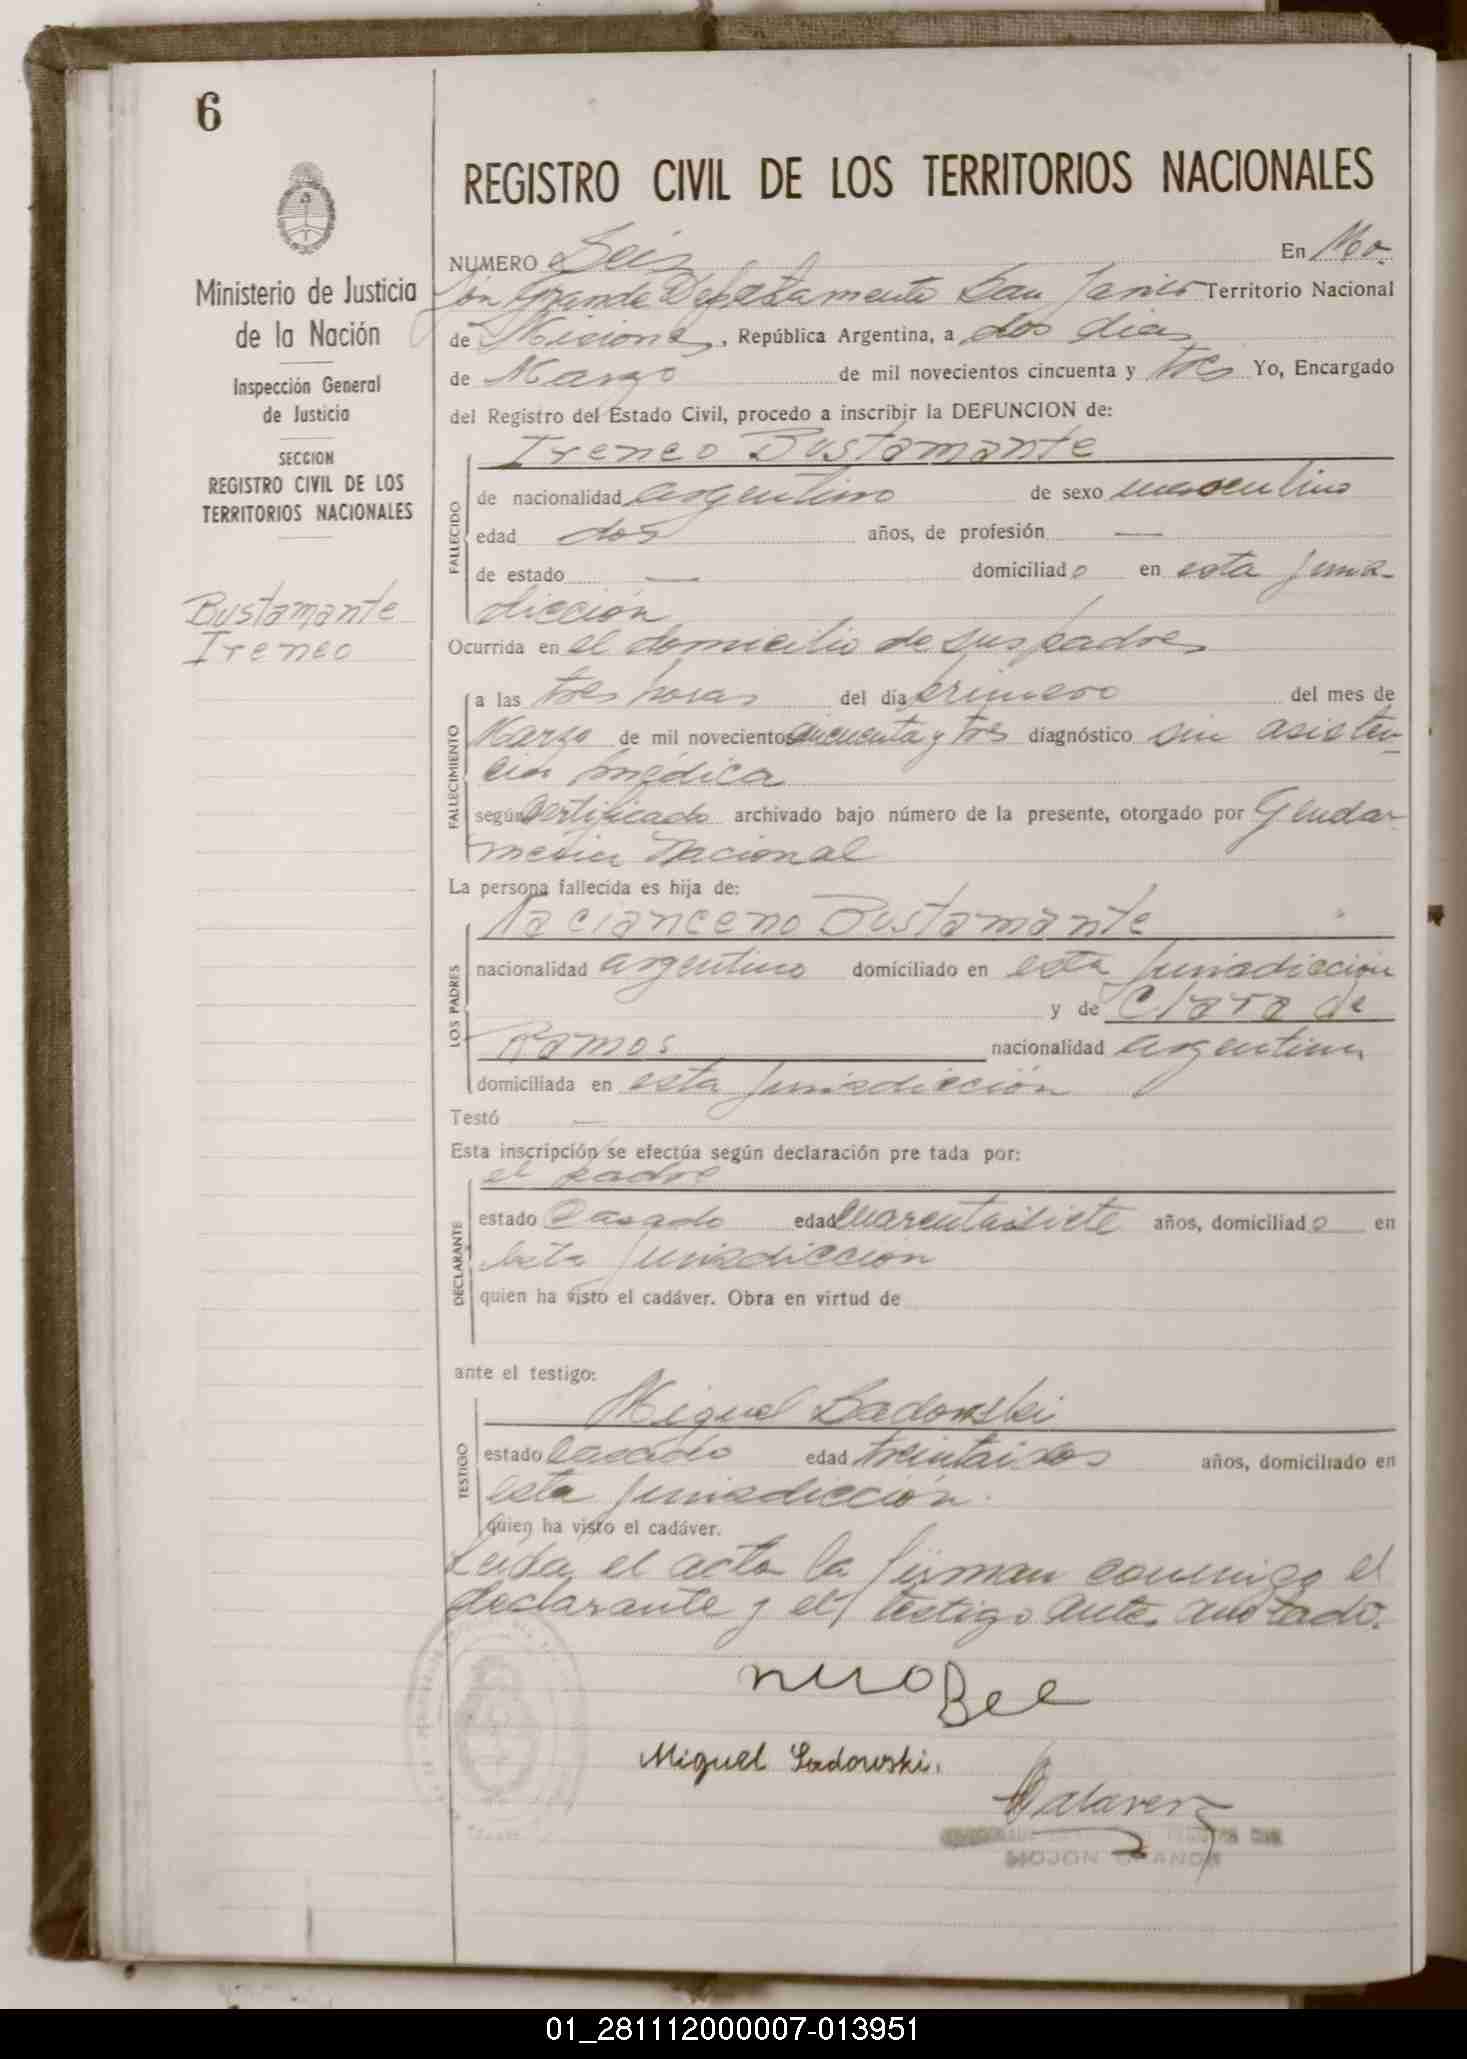 6
REGISTRO CIVIL DE LOS TERRITORIOS NACIONALES
Ministerio de Justicia
de la Nación
Inspección General
de Justicia
SECCION
REGISTRO CIVIL DE LOS
TERRITORIOS NACIONALES
Bustamante
Ireneo
NUMERO Seis En Mo-
jón Grande Departamento San Javier Territorio Nacional
de Misiones, República Argentina, a dos dias
de Marzo de mil novecientos cincuenta y tres Yo, Encargado
del Registro del Estado Civil, procedo a inscribir la DEFUNCION de:
Ireneo Bustamante
FALLECIDO
de nacionalidad argentino de sexo masculino
edad dos años, de profesión —
de estado — domiciliado en esta juris-
dicción
Ocurrida en el domicilio de sus padres
FALLECIMIENTO
a las tres horas del día primero del mes de
Marzo de mil novecientos cincuenta y tres diagnóstico sin asisten-
cia médica
según certificado archivado bajo número de la presente, otorgado por Gendar-
meria Nacional
La persona fallecida es hija de:
Nacianceno Bustamante
LOS PADRES
nacionalidad argentino domiciliado en esta jurisdicción
y de Clara de
Ramos nacionalidad argentina
domiciliada en esta jurisdicción
Testó —
Esta inscripción se efectúa según declaración pre tada por:
el padre
DECLARANTE
estado Casado edad cuarentaisiete años, domiciliado en
esta jurisdicción
quien ha visto el cadáver. Obra en virtud de
ante el testigo:
Miguel Sadowski
TESTIGO
estado casado edad treintaidos años, domiciliado en
esta jurisdicción.
quien ha visto el cadáver.
Leida el acta la firman conmigo el
declarante y el testigo antes anotado.
Miguel Sadowski.
MOJON GRANDE
01_281112000007-013951